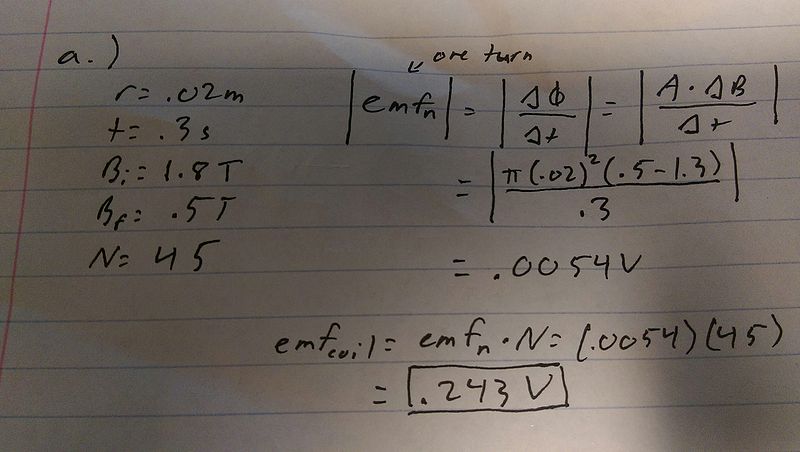 a.)
r = .02m
t = .3 s
Bi = 1.8 T
Bf = .5T
N = 45
↙ one turn
|emfn| = |ΔΦ/Δt| = |A · ΔB/Δt|
= |π(.02)²(.5-1.3)/.3|
= .0054V
emfcoil = emfn · N = (.0054)(45)
= .243 V